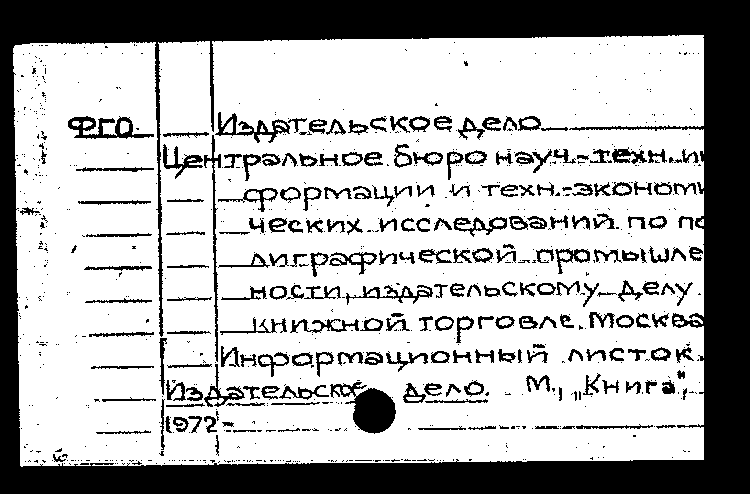 ФГО Издательское дело
Центральное бюро науч.-техн. ин
формации и техн.-экономи
ческих исследований по по
лиграфической промышле
ности, издательскому делу
книжной торговле. Москва
Информационный листок.
Издательское дело. М., „Книга",
1972-